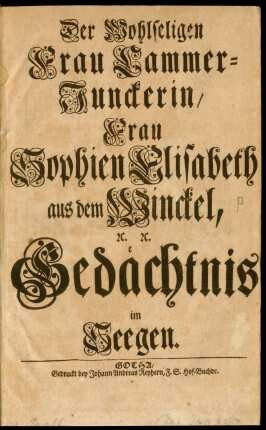 Der Wohlseligen
Frau Cammer-
Junckerin/
Frau
Sophien Elisabeth
aus dem Winckel,
ꝛc. ꝛc.
Gedaͤchtnis
im
Seegen.
GOTHA,
Gedruckt bey Johann Andreas Reyhern, F. S. Hof-Buchdr.